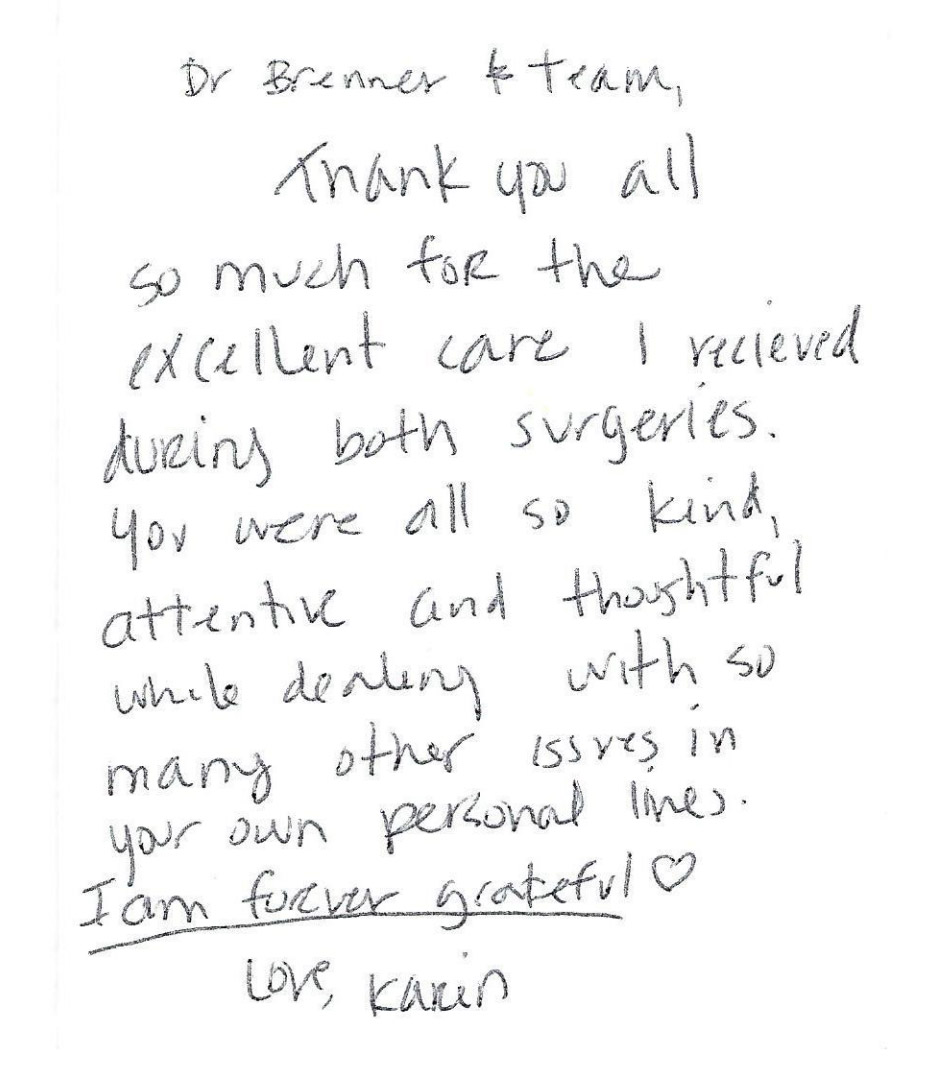 Dr Brenner & team,
Thank you all
so much for the
excellent care I recieved
during both surgeries.
You were all so kind,
attentive and thoughtful
while dealing with so
many other issues in
your own personal lives.
I am forever grateful ♡
Love, Karin